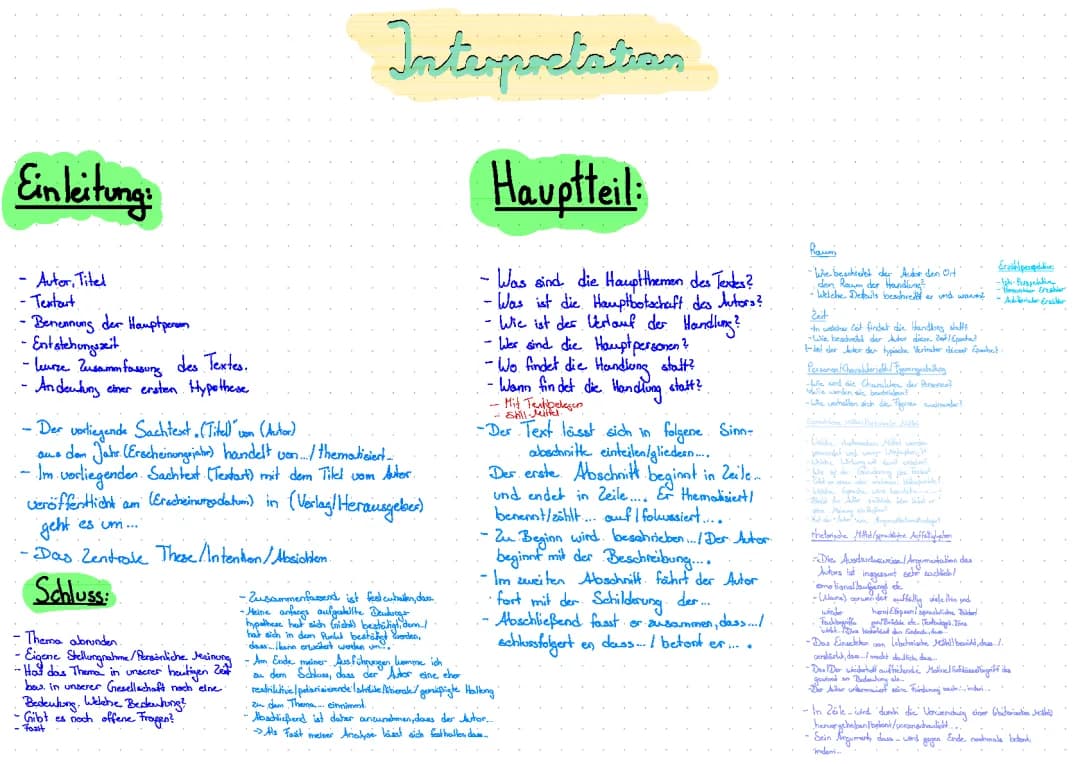 Interpretation
Einleitung:
- Autor, Titel
- Textart
- Benennung der Hauptperson
- Entstehungszeit
- kurze Zusammfassung des Textes.
- Andeutung einer ersten Hypothese
- Der vorliegende Sachtext „(Titel)" von (Autor)
aus dem Jahr (Erscheinungsjahr) handelt von.../thematisiert...
- Im vorliegenden Sachtext (Textart) mit dem Titel vom Autor
veröffentlicht am (Erscheinungsdatum) in (Verlag/Herausgeber)
geht es um...
- Das Zentrale These/Intention/Absichten
Schluss:
- Thema abrunden
- Eigene Stellungnahme/Persönliche Meinung
- Hat das Thema in unserer heutigen Zeit
bzw. in unserer Gesellschaft noch eine
Bedeutung. Welche Bedeutung?
- Gibt es noch offene Fragen?
- Fazit
- Zusammenfassend ist festzuhalten, dass
- Meine anfangs aufgestellte Deutungs-
hypothese hat sich (nicht) bestätigt, denn.../
hat sich in dem Punkt bestätigt werden,
dass.../kann erweitert werden um...
- Am Ende meiner Ausführungen komme ich
zu dem Schluss, dass der Autor eine eher
restriktive/polarisierende/strikte/liberale/gemäßigte Haltung
zu dem Thema... einnimmt.
- Abschließend ist daher anzunehmen, dass der Autor...
-> Als Fazit meiner Analyse lässt sich festhalten, dass...
Hauptteil:
- Was sind die Hauptthemen des Textes?
- Was ist die Hauptbotschaft des Autors?
- Wie ist der Verlauf der Handlung?
- Wer sind die Hauptpersonen?
- Wo findet die Handlung statt?
- Wann findet die Handlung statt?
- Mit Textbelegen
- Still-Mittel
- Der Text lässt sich in folgene Sinn-
abschnitte einteilen/gliedern...
Der erste Abschnitt beginnt in Zeile...
und endet in Zeile.... Er thematisiert/
benennt/zählt ... auf/fokussiert....
- Zu Beginn wird beschrieben.../Der Autor
beginnt mit der Beschreibung...
- Im zweiten Abschnitt fährt der Autor
fort mit der Schilderung der...
- Abschließend fasst er zusammen, dass.../
schlussfolgert er, dass.../ betont er... .
Raum
- Wie beschreibt der Autor den Ort
den Raum der Handlung?
- Welche Details beschreibt er und warum?
Erzählperspektive
- Ich-Perspektive
- Personaler Erzähler
- Auktorialer Erzähler
Zeit
- In welcher Zeit findet die Handlung statt?
- Wie beschreibt der Autor diese Zeit/Epoche?
- Ist der Autor der typische Vertreter dieser Epoche?
Personen/Charakteristik/Figurengestaltung
- Wie sind die Charaktere der Personen?
- Wie werden sie beschrieben?
- Wie verhalten sich die Figuren zueinander?
rhetorische Mittel/sprachliche Auffälligkeiten
- Die Ausdrucksweise/Argumentation des
Autors ist insgesamt sehr sachlich/
emotional/aufgeregt etc.
- (Name) verwendet auffällig viele
- Das Einsetzen von (rhetorische Mittel) bewirkt, dass.../
verdeutlicht, dass.../macht deutlich, dass...
- Das/Der wiederholt auftretende Motive/Schlüsselbegriff des
gewinnt an Bedeutung als...
- Der Autor untermauert seine Forderung nach..., indem...
- In Zeile... wird durch die Verwendung einer (rhetorischen Mittel)
hervorgehoben/betont/veranschaulicht...
- Sein Argument, dass... wird gegen Ende nochmals betont,
indem...